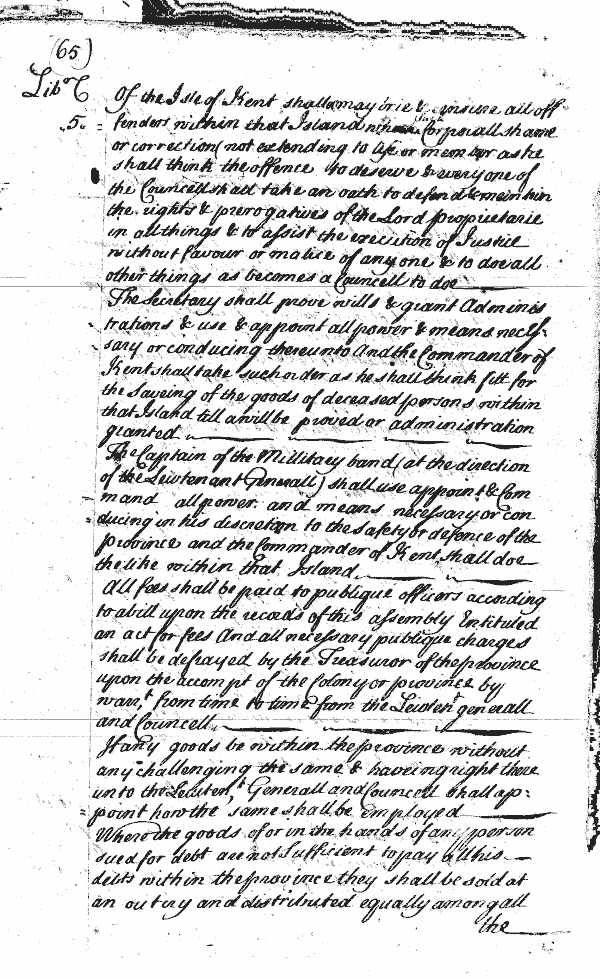 (65)
Lib^r C
5
Of the Isle of Kent shall & may trie & censure all off
fenders within that Island Corporall shame
or correction (not extending to life or member as he
shall think the offence to deserve & every one of
the Councell shall take an oath to defend & maintain
the rights & prerogatives of the Lord proprietarie
in all things & to assist the execution of Justice
without favour or malice of any one & to doe all
other things as becomes a Councell to doe
The Secretary shall prove wills & grant Adminis
trations & use & appoint all power & means neces-
sary or conducing thereunto And the Commander of
Kent shall take such order as he shall think fitt for
the saveing of the goods of deceased persons within
that Island till a will be proved or administration
granted
The Captain of the Millitary band (at the direction
of the Leivtenant Generall) shall use appoint & Com
mand all power and means necessary or con
ducing in his discretion to the safety or defence of the
province and the Commander of Kent shall doe
the like within that Island
All fees shall be paid to publique officers according
to a bill upon the records of this assembly Entituled
an act for fees And all necessary publique charges
shall be defrayed by the Treasuror of the province
upon the accompt of the Colony or province by
warr^t from time to time from the Leivten^t generall
and Councell
If any goods be within the province without
any challenging the same & haveing right there
unto the Leivten^t Generall and Councell shall ap=
point how the same shall be employed
Where the goods of or in the hands of any person
sued for debt are not Sufficient to pay all his
debts within the province they shall be sold at
an outcry and distributed equally among all
the